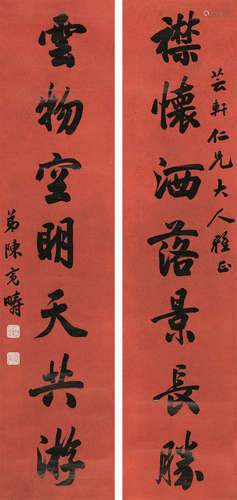 芸軒仁兄大人雅正
襟懷洒落景長勝
雲物空明天共游
弟陳克疇